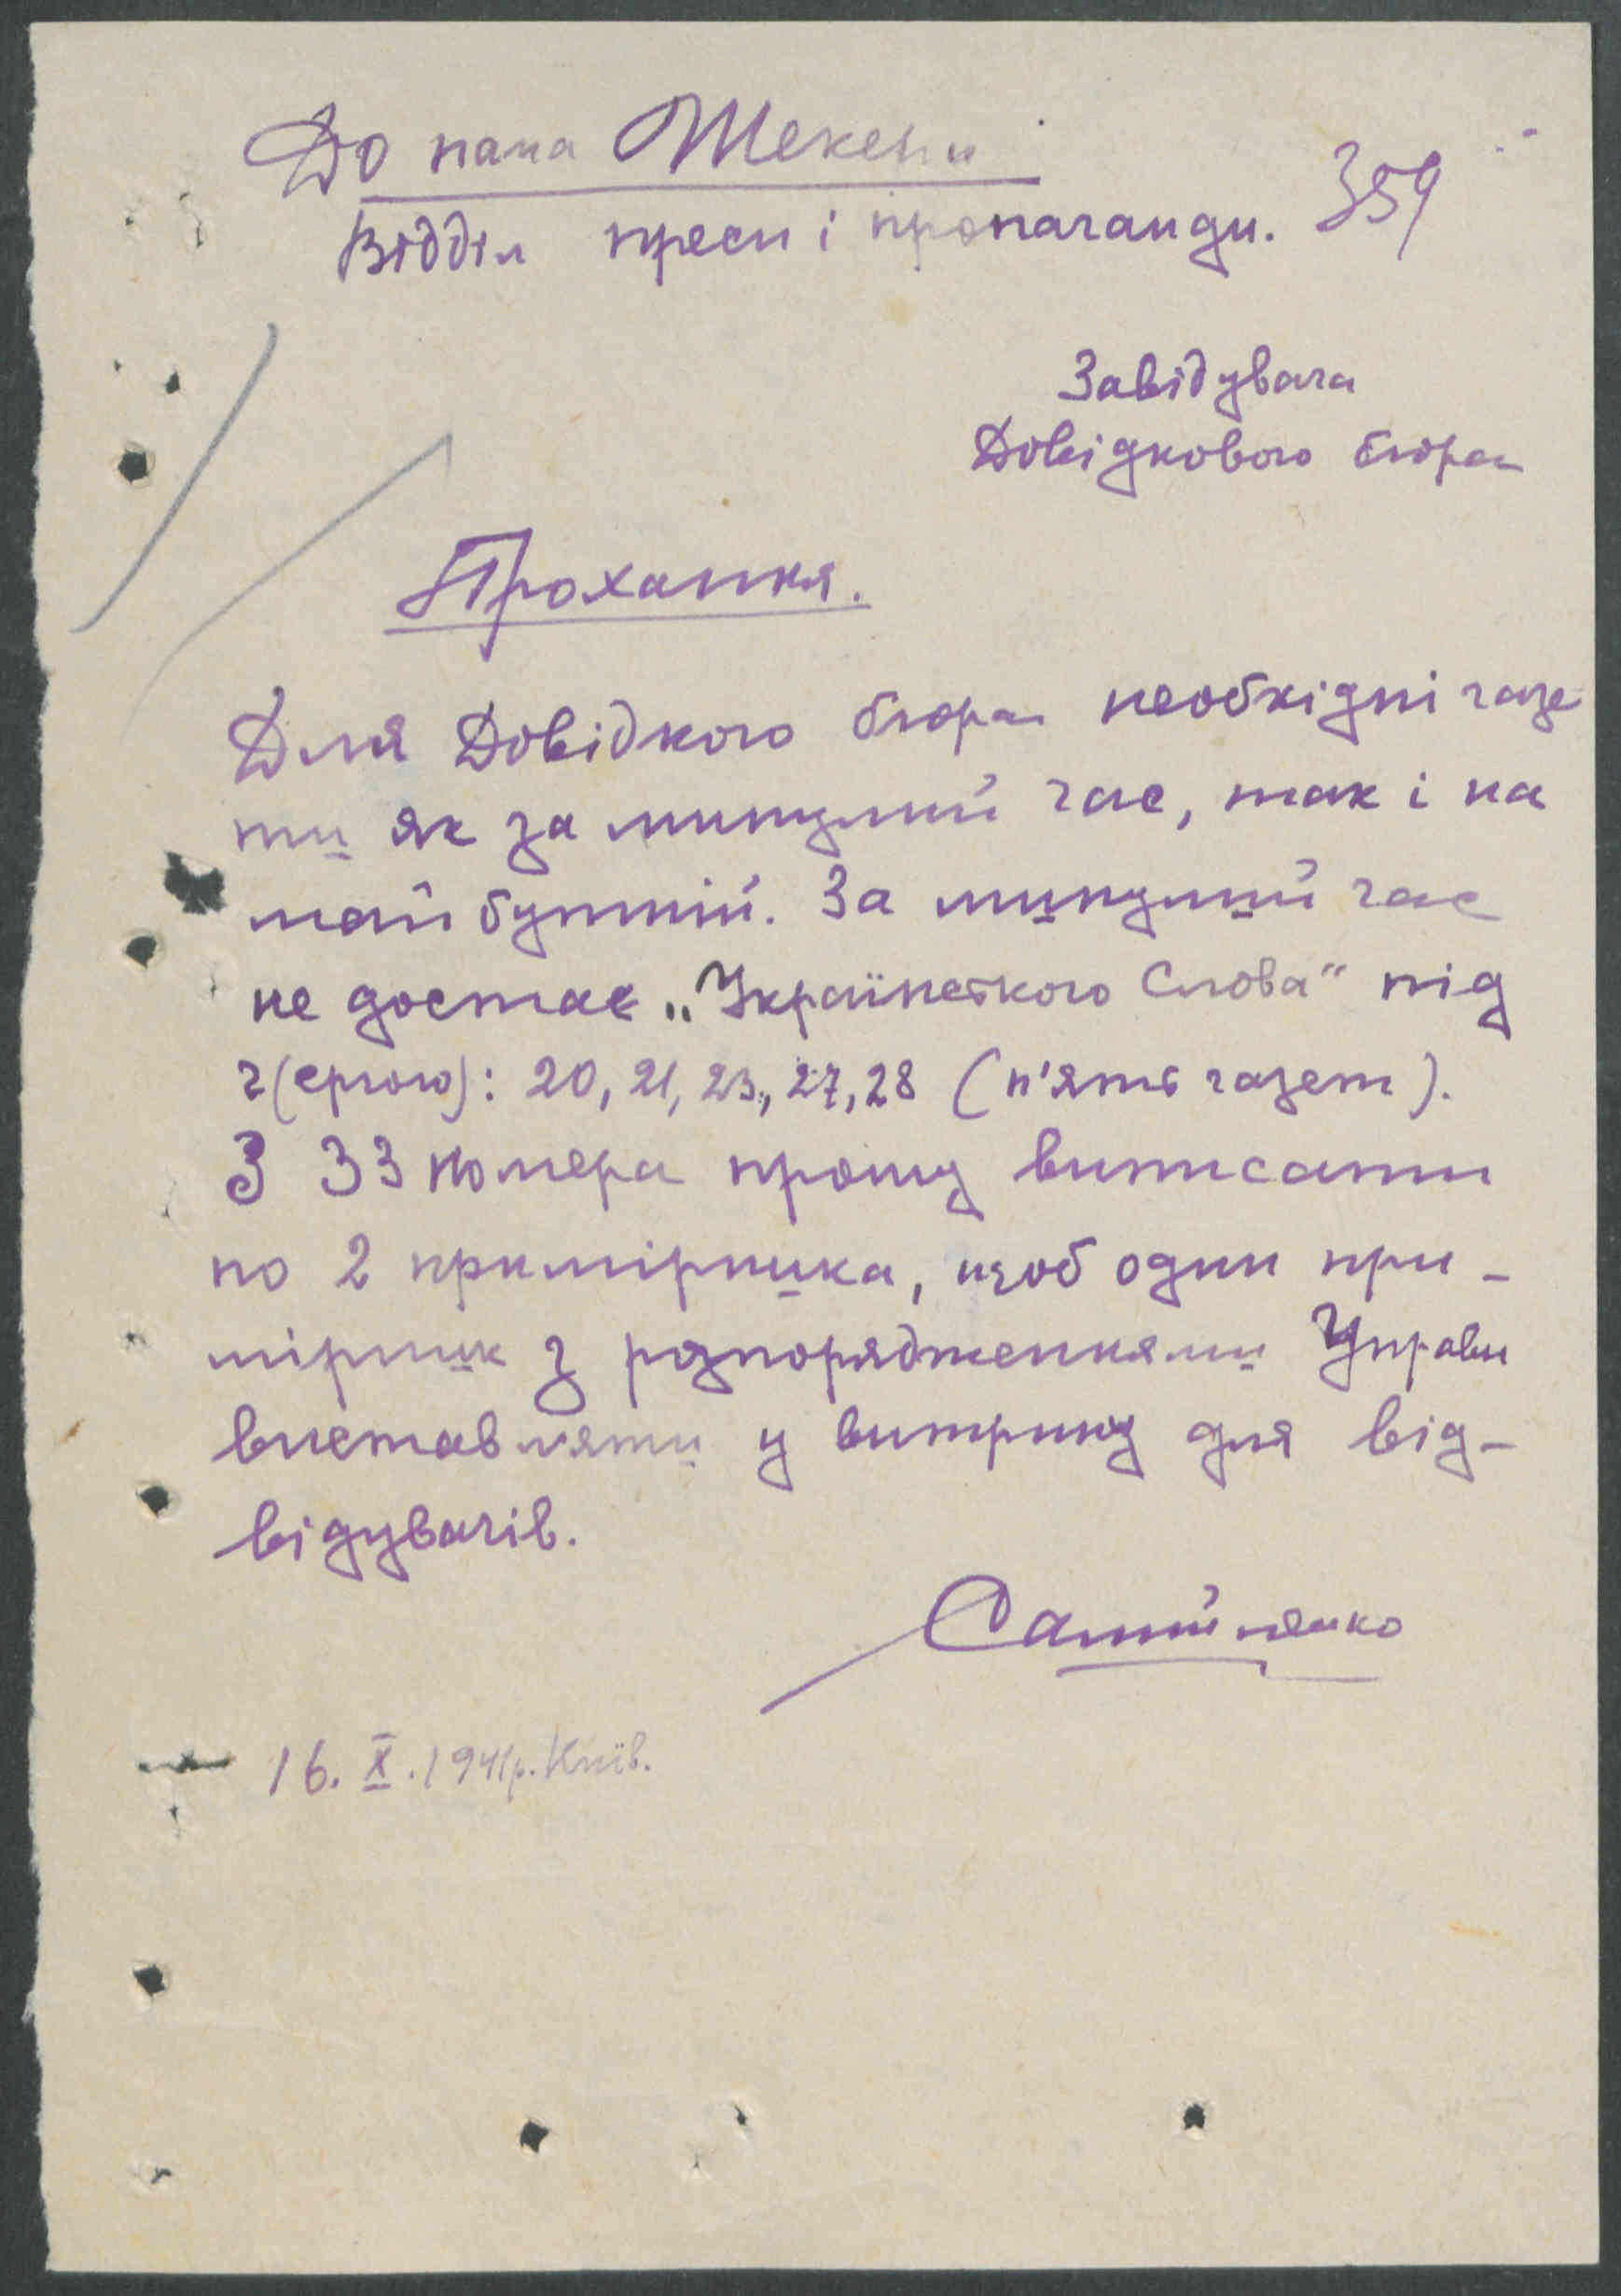 До пана Шекени
Відділ преси і пропаганди. 359
Завідувача
Довідкового бюра
Прохання.
Для Довідкого бюра необхідні газе
ти як за минулий час, так і на
майбутній. За минулий час
не достає „Українського Слова" під
ч(ергою): 20, 21, 23, 27, 28 (п'ять газет).
З 33 номера прошу виписати
по 2 примірника, щоб один при-
мірник з розпорядженнями Управи
виставляти у витрину для від-
відувачів.
16. X. 1941р. Київ.